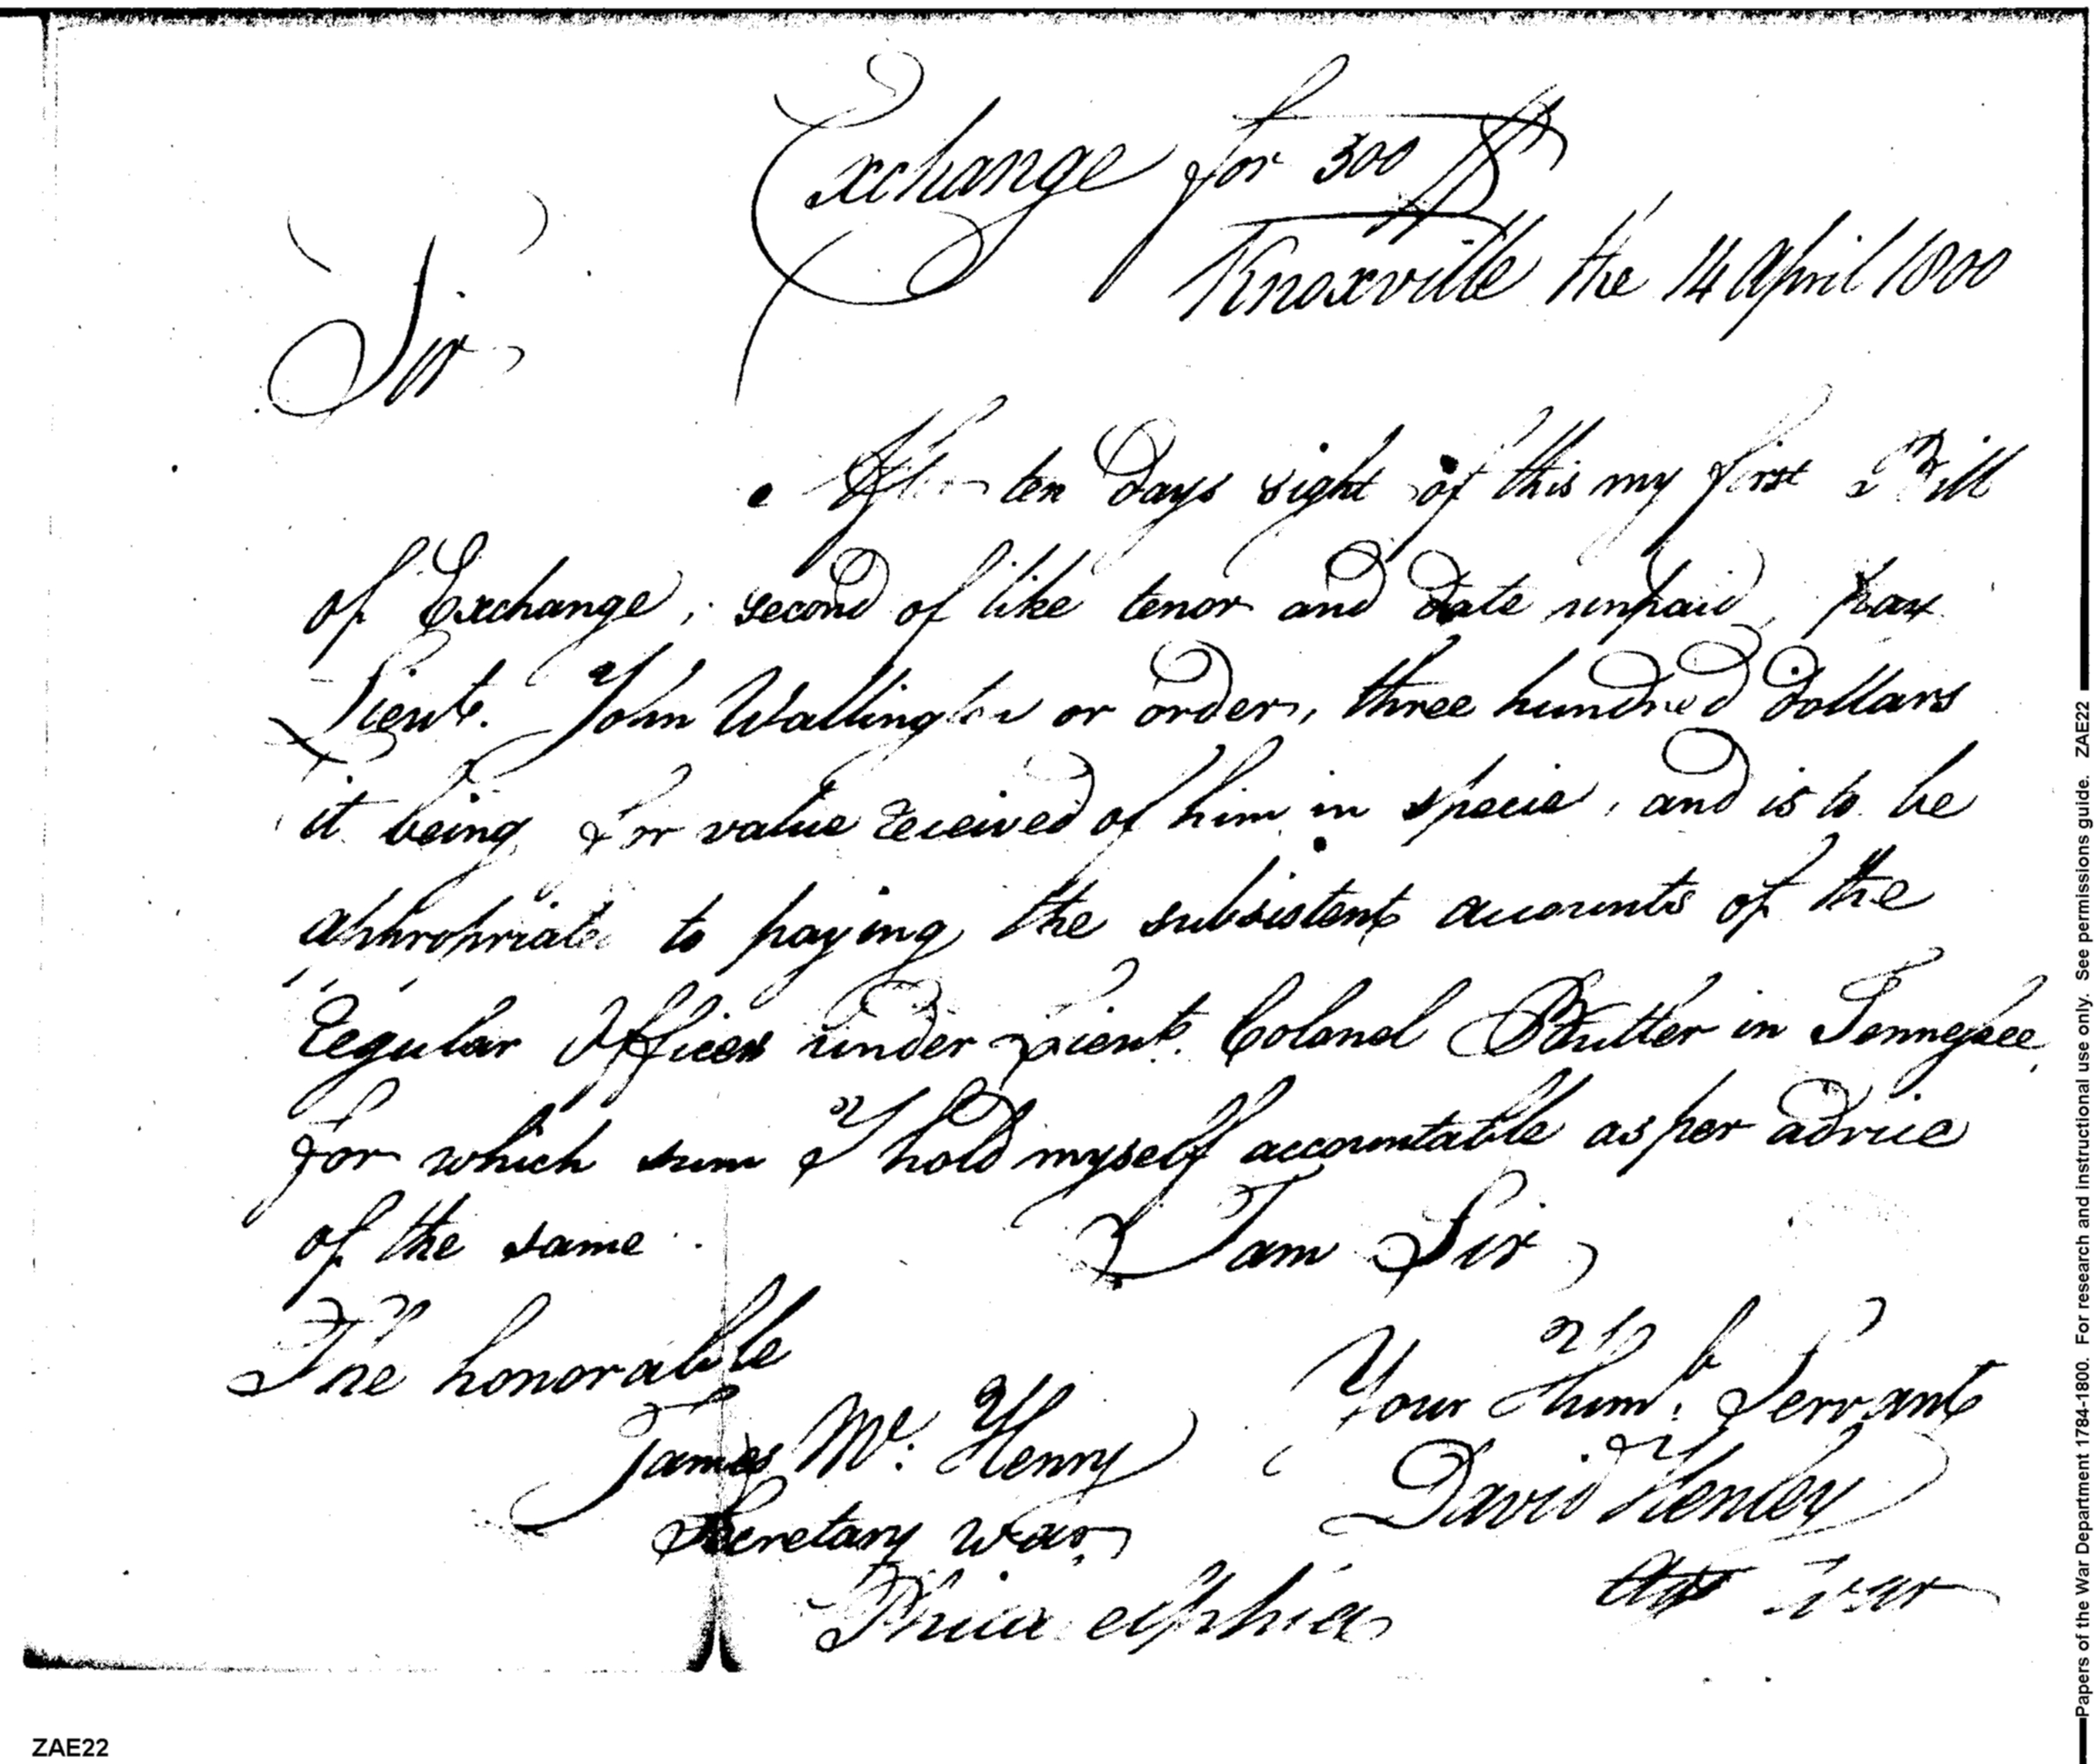 Exchange for 300 Ds
Knoxville the 14 April 1800
Sir,
After ten Days sight of this my first Bill
of Exchange, second of like tenor and date unpaid, pay
Lieut. John Wallington or order, three hundred Dollars
it being for value received of him in specie, and is to be
appropriated to paying the subsistent accounts of the
regular Officers under Lieut. Colonel Butler in Tennessee,
for which sum I hold myself accountable as per advice
of the same.
I am Sir,
The honorable
Your Humb. Servant
James Mc. Henry
David Henley
Secretary War,
Agt War
Philadelphia
Papers of the War Department 1784-1800. For research and instructional use only. See permissions guide. ZAE22
ZAE22